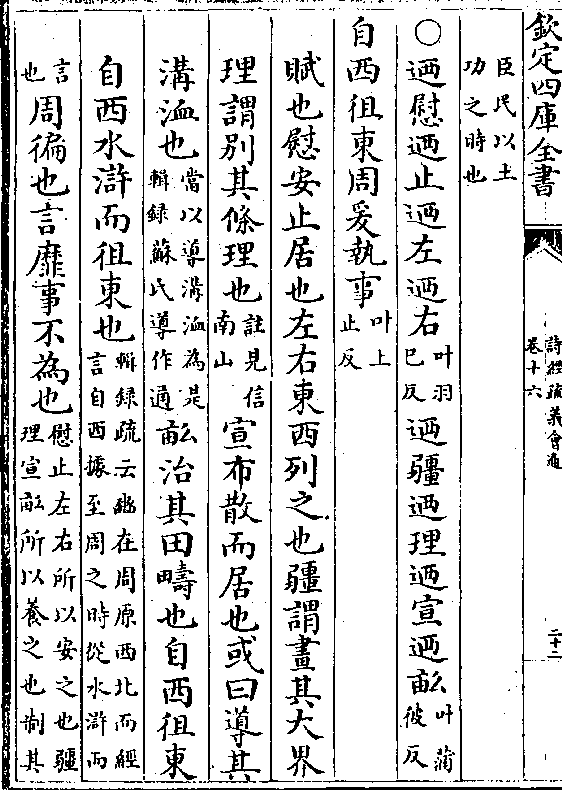 欽定四庫全書
詩經疏義會通
卷十六
二十二
臣民以土
功之時也
○廼慰廼止廼左廼右叶羽已反廼疆廼理廼宣廼畝叶蒲彼反
自西徂東周爰執事叶上止反
賦也慰安止居也左右東西列之也疆謂畫其大界
理謂別其條理也註見信南山宣布散而居也或曰導其
溝洫也當以導溝洫為是輯録蘇氏導作通畝治其田疇也自西徂東
自西水滸而徂東也輯録疏云豳在周原西北而經言自西據至周之時從水滸而
言也周徧也言靡事不為也慰止左右所以安之也疆理宣畝所以養之也制其